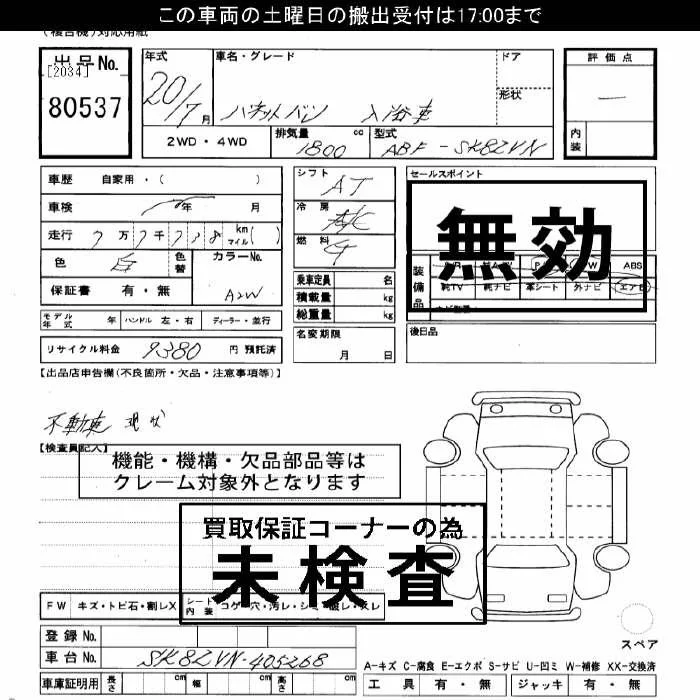 この車両の土曜日の搬出受付は17:00まで
(複合機)対応用紙
出品No.
[2034]
80537
年式
20/7月
車名・グレード
バネットバン 入浴車
ドア
形状
評価点
—
内装
2WD・4WD
排気量 1800 cc
型式 ABF-SK82VN
車歴 自家用・( )
車検 年 月
走行 7万7千718 km マイル( )
色 白
色替
カラーNo. A2W
保証書 有・無
モデル年式 年
ハンドル 左・右
ディーラー・並行
リサイクル料金 9380 円 預託済
シフト AT
冷房 A/C
燃料 G
乗車定員 名
積載量 kg
総重量 kg
名変期限 月 日
セールスポイント
無効
装備品
ABS
純TV 純ナビ 革シート 外ナビ エアB
後日品
【出品店申告欄(不良箇所・欠品・注意事項等)】
不動車 現状
【検査員記入】
機能・機構・欠品部品等は
クレーム対象外となります
買取保証コーナーの為
未検査
FW キズ・トビ石・割レX
シート内装 コゲ・穴・汚レ・シミ・破レ・スレ
登録No.
車台No. SK82VN-405268
車庫証明用 長さ cm 幅 cm 高さ cm
スペア
A-キズ C-腐食 E-エクボ S-サビ U-凹ミ W-補修 XX-交換済
工具 有・無 ジャッキ 有・無